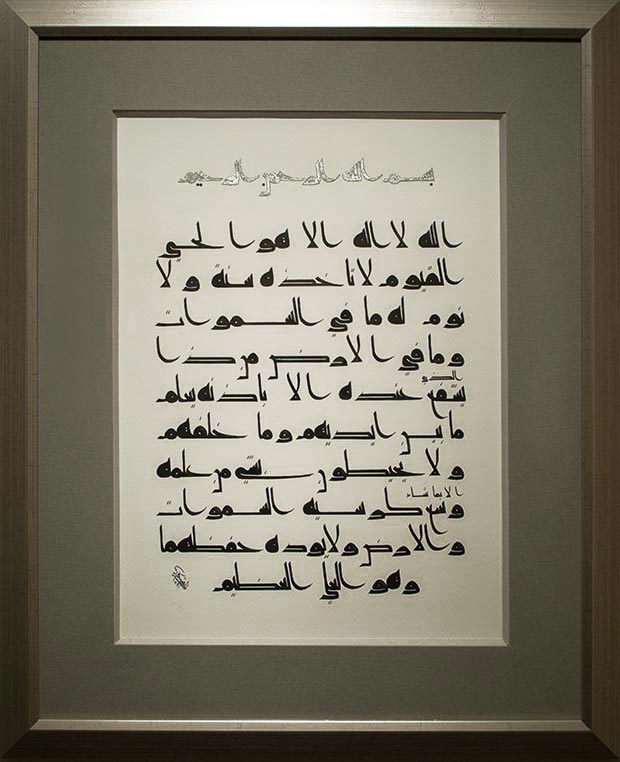 بسم الله الرحمن الرحيم
الله لا اله الا هو الحي
القيوم لا تا خذه سنة و لا
نوم له ما في السموات
و ما في الارض من ذا
الذي
يشفع عنده الا باذنه يعلم
ما بين ايديهم و ما خلفهم
و لا يحيطون بشيء من علمه
الا بما شاء
وسع كرسيه السموات
و الارض و لا يوده حفظهما
و هو العلي العظيم